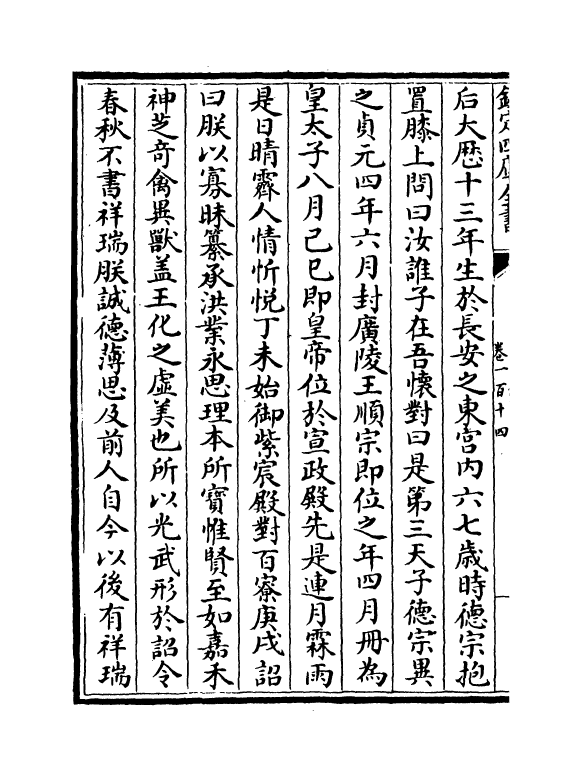 欽定四庫全書
卷一百十四
后大歴十三年生於長安之東宫内六七歳時德宗抱
置膝上問曰汝誰子在吾懷對曰是第三天子德宗異
之貞元四年六月封廣陵王順宗即位之年四月冊為
皇太子八月己巳即皇帝位於宣政殿先是連月霖雨
是日晴霽人情忻悦丁未始御紫宸殿對百寮庚戌詔
曰朕以寡昧纂承洪業永思理本所寳惟賢至如嘉禾
神芝奇禽異獸盖王化之虚美也所以光武形於詔令
春秋不書祥瑞朕誠德薄思及前人自今以後有祥瑞